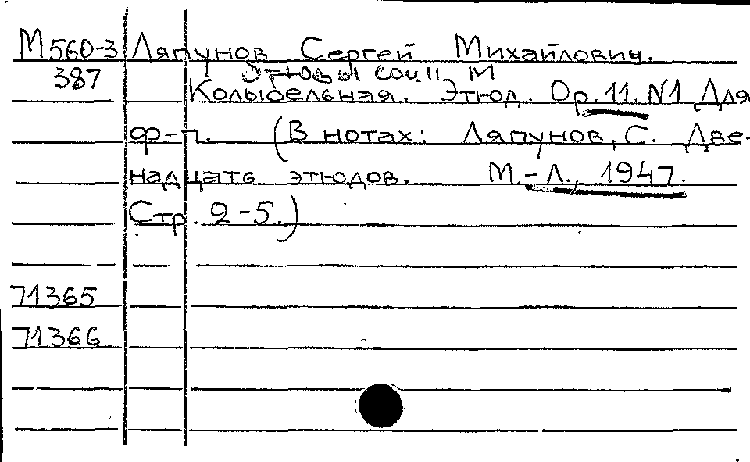 М560-3 Ляпунов Сергей Михайлович.
387 Этюды соч. 11 М
Колыбельная. Этюд. Op. 11. №1 Для
ф-п. (В нотах: Ляпунов, С. Две-
надцать этюдов. М.-Л., 1947.
Стр. 2-5.)
71365
71366